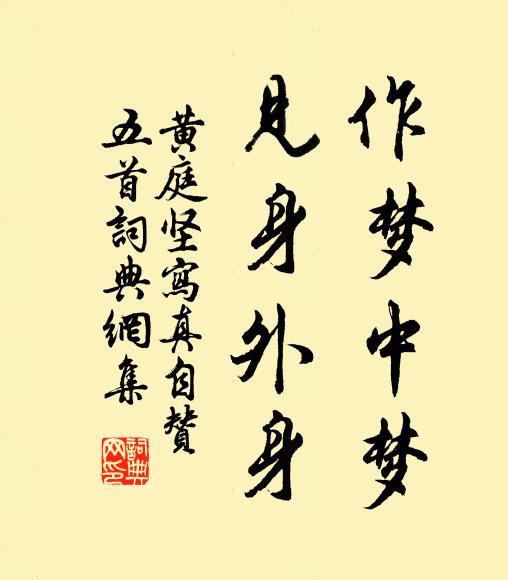 作梦中梦
见身外身
黄庭坚寫真自赞
五首詞典網集
詞典网印